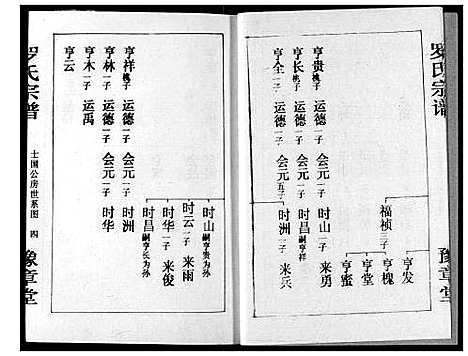 罗氏宗谱
豫章堂
福祯三子
亨发
亨槐
亨堂
亨蜜
亨贵桃子 运德一子 会元一子 时山一子 来勇
亨长桃子 运德一子 会元一子 时昌嗣亨祥
亨全一子 运德一子 会元五子 时洲一子 来兵
时山嗣亨贵为孙
时云一子 来雨
时华一子 来俊
时昌嗣亨长为孙
亨祥桃子 运德一子 会元一子 时洲
亨林一子 运德一子 会元一子 时华
亨木一子 运禹
亨云
罗氏宗谱
士国公房世系图 四
豫章堂